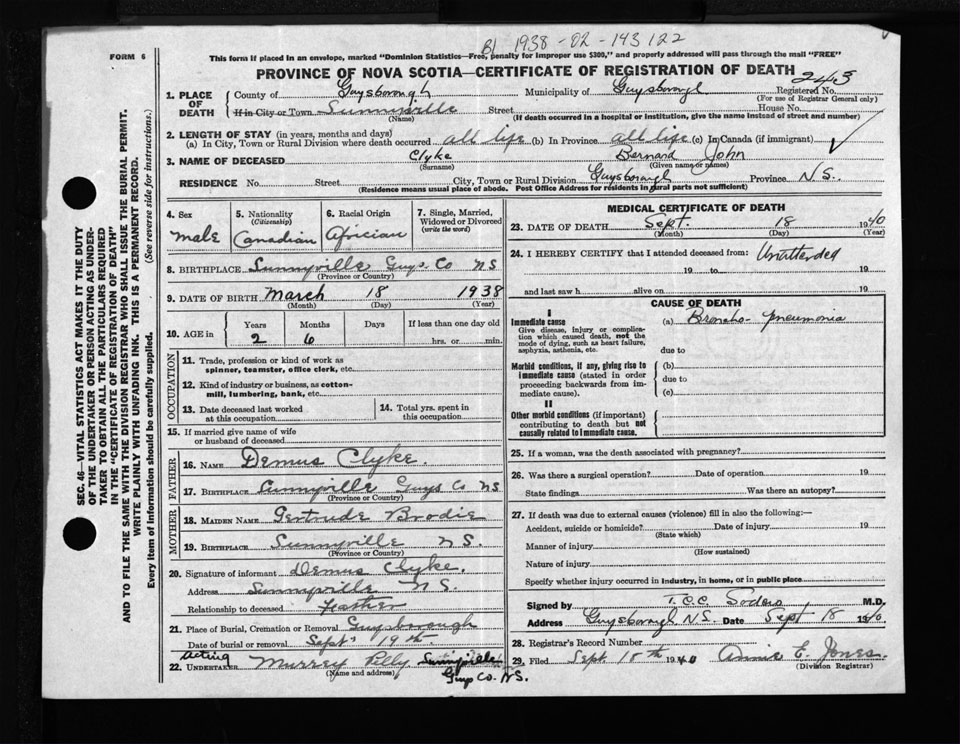 B1 1938-02-143122
FORM 6
This form if placed in an envelope, marked "Dominion Statistics—Free, penalty for improper use $300," and properly addressed will pass through the mail "FREE"
PROVINCE OF NOVA SCOTIA—CERTIFICATE OF REGISTRATION OF DEATH 243
1. PLACE OF DEATH
County of Guysborough Municipality of Guysborough Registered No.
(For use of Registrar General only)
If in City or Town Sunnyville Street House No.
(Name) (If death occurred in a hospital or institution, give the name instead of street and number)
2. LENGTH OF STAY (in years, months and days)
(a) In City, Town or Rural Division where death occurred all life (b) In Province all life (c) In Canada (if immigrant)
3. NAME OF DECEASED Clyke Bernard John
(Surname) (Given name or names)
RESIDENCE No. Street City, Town or Rural Division Guysborough Province N.S.
(Residence means usual place of abode. Post Office Address for residents in rural parts not sufficient)
4. Sex male
5. Nationality (Citizenship) Canadian
6. Racial Origin Africian
7. Single, Married, Widowed or Divorced (write the word)
8. BIRTHPLACE Sunnyville Guys. Co NS
(Province or Country)
9. DATE OF BIRTH March 18 1938
(Month) (Day) (Year)
10. AGE in Years Months Days If less than one day old
2 6 hrs. or min.
OCCUPATION
11. Trade, profession or kind of work as spinner, teamster, office clerk, etc.
12. Kind of industry or business, as cotton-mill, lumbering, bank, etc.
13. Date deceased last worked at this occupation
14. Total yrs. spent in this occupation
15. If married give name of wife or husband of deceased
FATHER
16. NAME Demus Clyke.
17. BIRTHPLACE Sunnyville Guys Co NS
(Province or Country)
MOTHER
18. MAIDEN NAME Gertrude Brodie
19. BIRTHPLACE Sunnyville NS.
(Province or Country)
20. Signature of informant Demus Clyke.
Address Sunnyville NS
Relationship to deceased Feather
21. Place of Burial, Cremation or Removal Guysborough
Date of burial or removal Sept 19th
Acting
22. UNDERTAKER Murrey Sunnyville
(Name and address) Guys Co. NS.
MEDICAL CERTIFICATE OF DEATH
23. DATE OF DEATH Sept. 18 1940
(Month) (Day) (Year)
24. I HEREBY CERTIFY that I attended deceased from: Unattended
19 to 19
and last saw h alive on 19
CAUSE OF DEATH
I
Immediate cause (a) Broncho-pneumonia
Give disease, injury or complication which caused death, not the mode of dying, such as heart failure, asphyxia, asthenia, etc.
due to
Morbid conditions, if any, giving rise to immediate cause (stated in order proceeding backwards from immediate cause).
(b)
due to
(c)
II
Other morbid conditions (if important) contributing to death but not causally related to immediate cause.
25. If a woman, was the death associated with pregnancy?
26. Was there a surgical operation? Date of operation 19
State findings Was there an autopsy?
27. If death was due to external causes (violence) fill in also the following:—
Accident, suicide or homicide? Date of injury 19
(State which)
Manner of injury
(How sustained)
Nature of injury
Specify whether injury occurred in industry, in home, or in public place
Signed by T.C.C. Sodero M.D.
Address Guysborough N.S. Date Sept 18 1940
28. Registrar's Record Number
29. Filed Sept 18th 1940 Annie E. Jones.
(Division Registrar)
SEC. 46—VITAL STATISTICS ACT MAKES IT THE DUTY
OF THE UNDERTAKER OR PERSON ACTING AS UNDER-
TAKER TO OBTAIN ALL THE PARTICULARS REQUIRED
IN THE "CERTIFICATE OF REGISTRATION OF DEATH"
AND TO FILE THE SAME WITH THE DIVISION REGISTRAR WHO SHALL ISSUE THE BURIAL PERMIT.
WRITE PLAINLY WITH UNFADING INK. THIS IS A PERMANENT RECORD.
Every item of information should be carefully supplied. (See reverse side for instructions.)